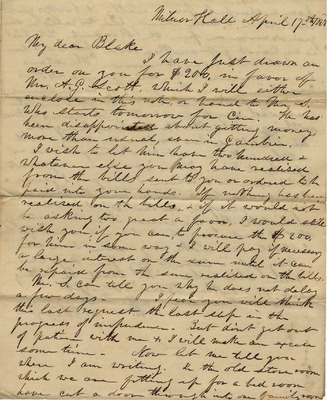 Milnor Hall April 17th
My dear Blake
I have just drawn an
order on you for $200, in favor of
Mr. A.G. Scott, which I will either
enclose in this note, or hand to Mr. S.
who starts tomorrow for Cin. He has
been disappointed about getting money
more than usual, even in Gambier.
I wish to let him have two hundred &
whatever else you may have realized
from the bills sent to you or ordered to be
paid into your hands. If nothing has been
realized on the bills, & if it would not
be asking too great a favor, I would still
wish you if you can, to procure the $200,
for him in some way & I will pay if necessary
a large interest on the sum until it can
be repaid from the sum realized on the bills.
Mr. S. can tell you why he does not delay
a few days. I fear you will think
this last request the last step in the
progress of impudence. But dont get out
of patience with me & I will make an excuse
some time. Now let me tell you
where I am writing. In the old store room
which we are fitting up for a bed room
have cut a door through into our family room